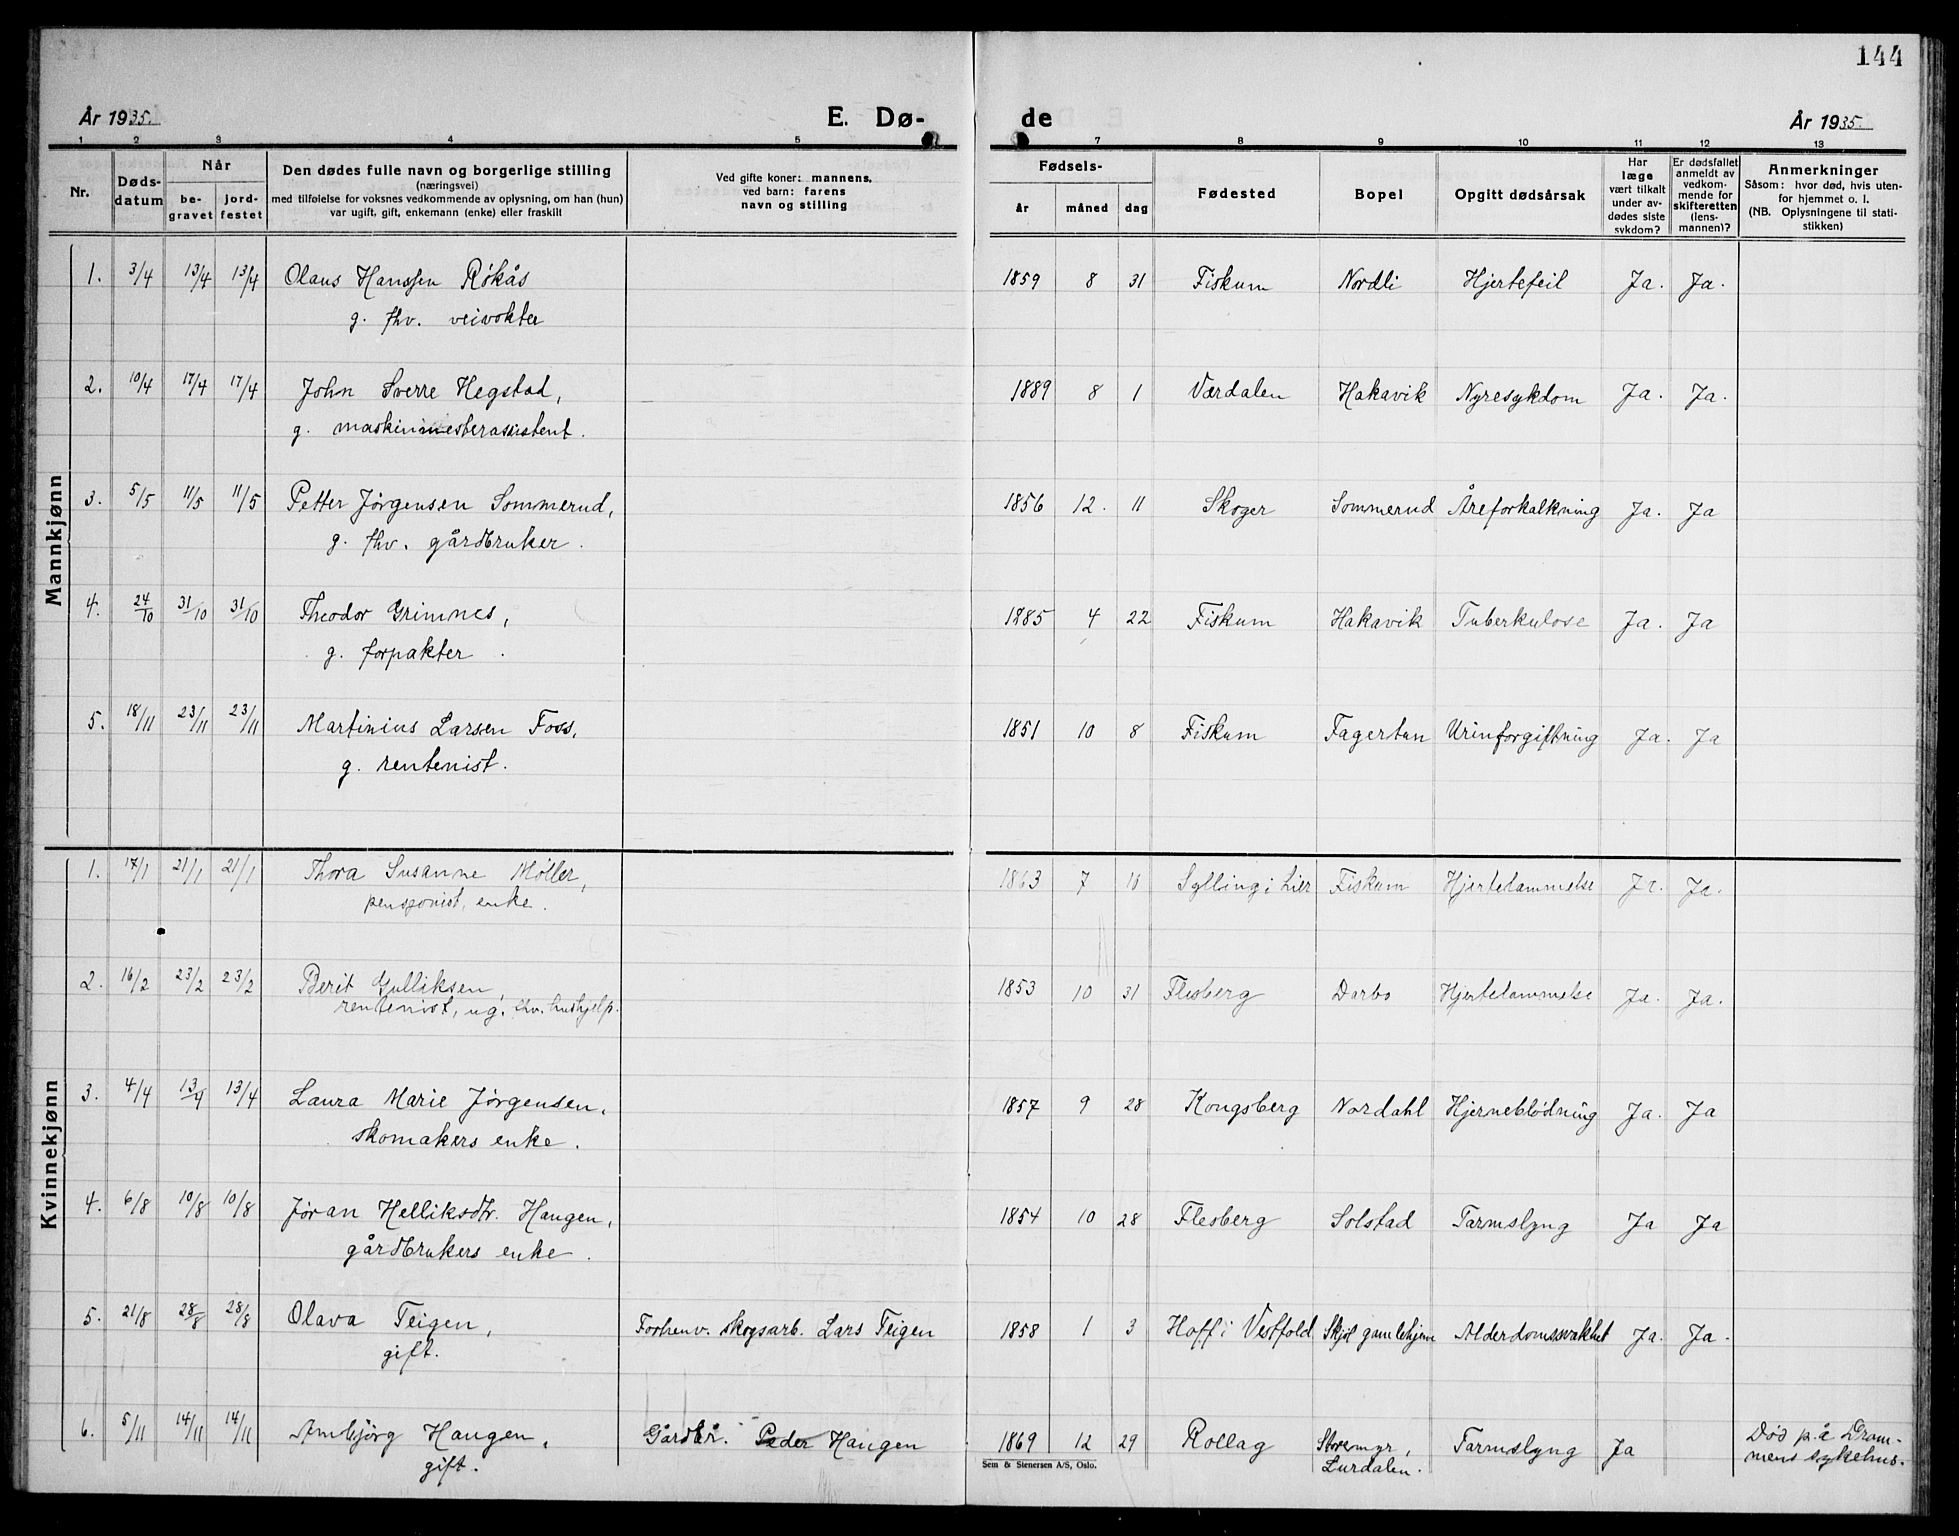 144
År 1935.
E. Dø-
de
År 1935.
1 2 3 4 5 7 8 9 10 11 12 13
Nr.
Døds-
datum
Når
be-
gravet
jord-
festet
Den dødes fulle navn og borgerlige stilling
(næringsvei)
med tilføielse for voksnes vedkommende av oplysning, om han (hun)
var ugift, gift, enkemann (enke) eller fraskilt
Ved gifte koner: mannens,
ved barn: farens
navn og stilling
Fødsels-
år måned dag
Fødested
Bopel
Opgitt dødsårsak
Har
læge
vært tilkalt
under av-
dødes siste
sykdom?
Er dødsfallet
anmeldt av
vedkom-
mende for
skifteretten
(lens-
mannen)?
Anmerkninger
Såsom: hvor død, hvis uten-
for hjemmet o. l.
(NB. Oplysningene til stati-
stikken)
Mannkjønn
1. 3/4 13/4 13/4 Olaus Hanssen Røkås 1859 8 31 Fiskum Nordli Hjertefeil Ja. Ja.
g. fhv. veivokter
2. 10/4 17/4 17/4 John Sverre Hegstad, 1889 8 1 Værdalen Hakavik Nyresykdom Ja. Ja.
g. maskinmesterassistent.
3. 5/5 11/5 11/5 Petter Jørgensen Sommerud, 1856 12. 11 Skoger Sommerud Åreforkalkning Ja. Ja
g. fhv. gårdbruker.
4. 24/10 31/10 31/10 Theodor Grimnes, 1885 4 22 Fiskum Hakavik Tuberkulose Ja. Ja
g. forpakter.
5. 18/11 23/11 23/11 Martinius Larsen Foss, 1851 10 8 Fiskum Fagertun Urinforgiftning Ja. Ja
g. rentenist.
Kvinnekjønn
1. 17/1 21/1 21/1 Thora Susanne Møller, 1863 7 10 Sylling i Lier Fiskum Hjertelammelse Ja. Ja.
pensjonist, enke.
2. 16/2 23/2 23/2 Berit Gulliksen, 1853 10 31 Flesberg Darbo Hjertelammelse Ja. Ja.
rentenist, ug. fhv. hushjelp.
3. 4/4 13/4 13/4 Laura Marie Jørgensen, 1857 9 28 Kongsberg Nordahl Hjerneblødning Ja. Ja
skomakers enke.
4. 6/8 10/8 10/8 Jøran Helliksdtr. Haugen, 1854 10 28 Flesberg Solstad Tarmslyng Ja Ja
gårdbrukers enke.
5. 21/8 28/8 28/8 Olava Teigen, Forhenv. skogsarb. Lars Teigen 1858 1 3 Hoff i Vestfold Skjøl gamlehjem Alderdomssvakhet Ja. Ja.
gift.
6. 5/11 14/11 14/11 Ambjørg Haugen, Gårdbr. Peder Haugen 1869 12 29 Rollag Storemyr, Tarmslyng Ja Død på Dram-
gift. Lurdalen. mens sykehus.
Sem & Stenersen A/S, Oslo.